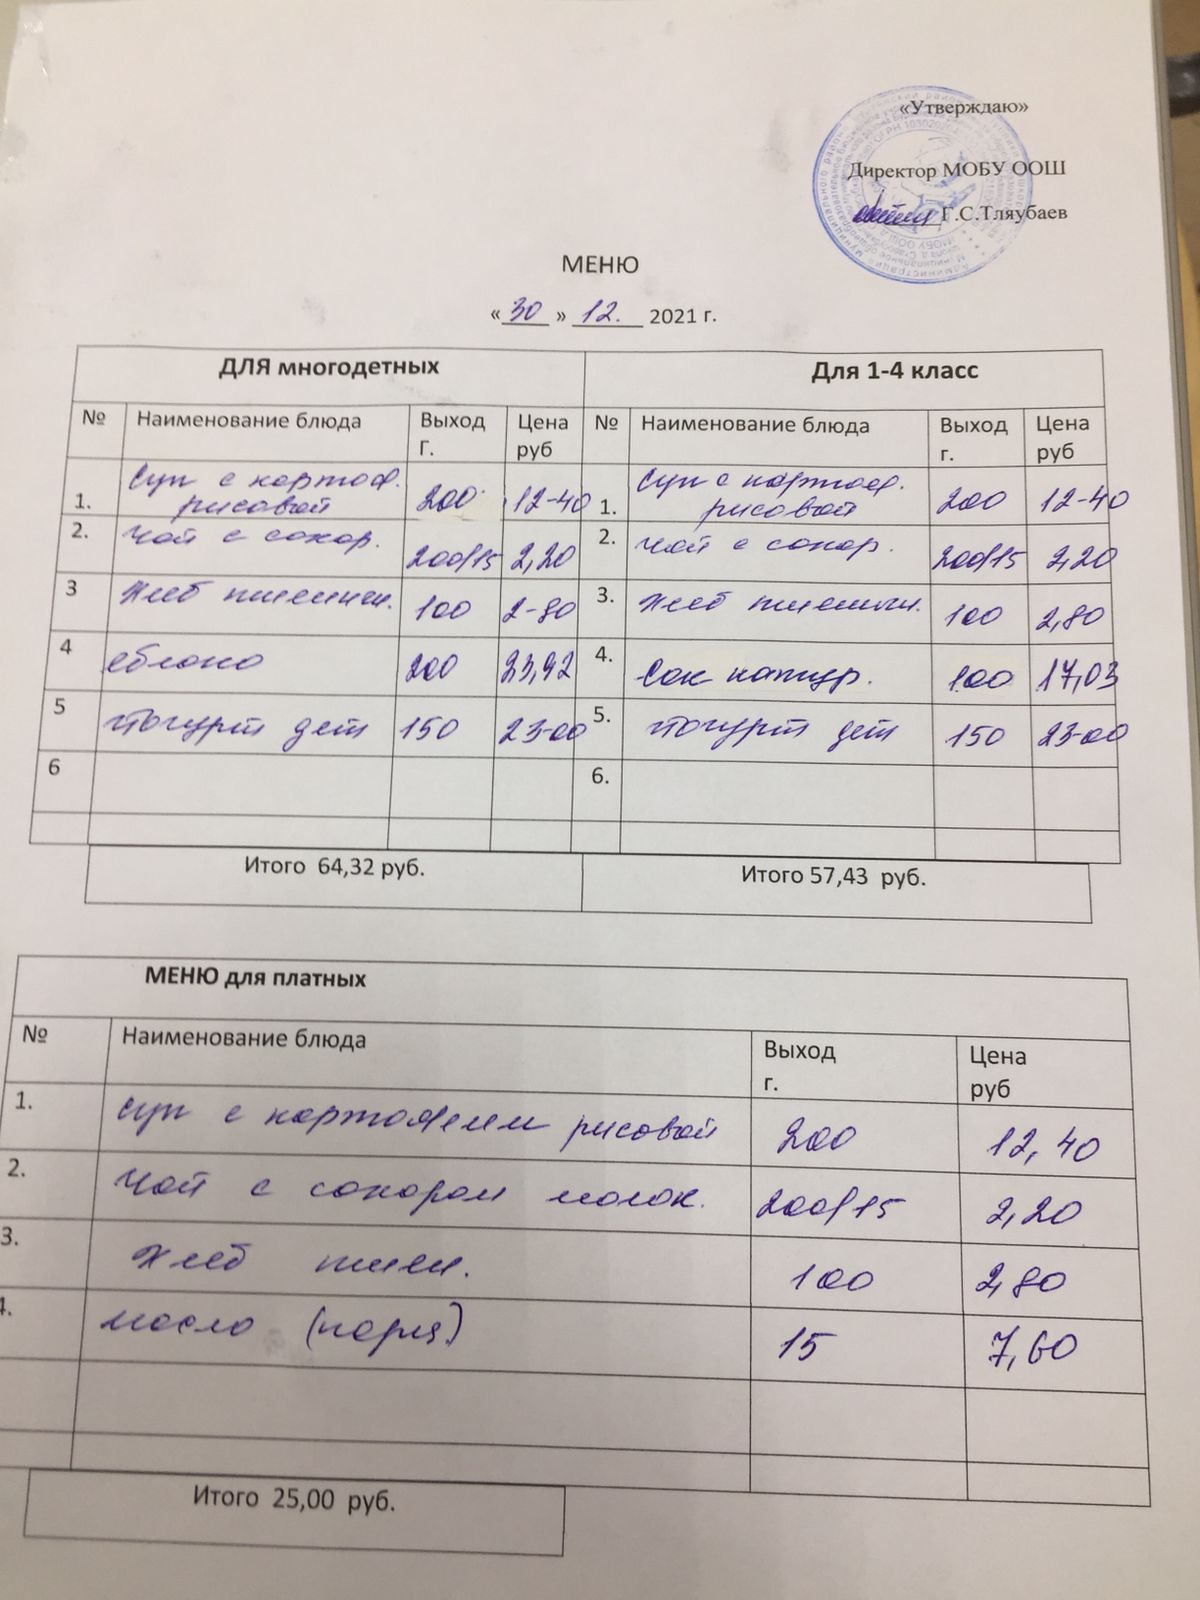 «Утверждаю»
Директор МОБУ ООШ
Г.С.Тляубаев
МЕНЮ
« 30 » 12. 2021 г.
ДЛЯ многодетных Для 1-4 класс
№ Наименование блюда Выход Г. Цена руб № Наименование блюда Выход г. Цена руб
1. Суп с картоф. рисовой 200 12-40 1. Суп с картоф. рисовой 200 12-40
2. Чай с сахар. 200/15 2,20 2. Чай с сахар. 200/15 2,20
3 Хлеб пшенич. 100 2-80 3. Хлеб пшенич. 100 2,80
4 яблоко 200 23,92 4. Сок натур. 100 17,03
5 Йогурт дет 150 23-00 5. Йогурт дет 150 23-00
6 6.
Итого 64,32 руб. Итого 57,43 руб.
МЕНЮ для платных
№ Наименование блюда Выход г. Цена руб
1. Суп с картофелем рисовой 200 12,40
2. Чай с сахаром молок. 200/15 2,20
3. Хлеб пшен. 100 2,80
4. масло (порц) 15 7,60
Итого 25,00 руб.